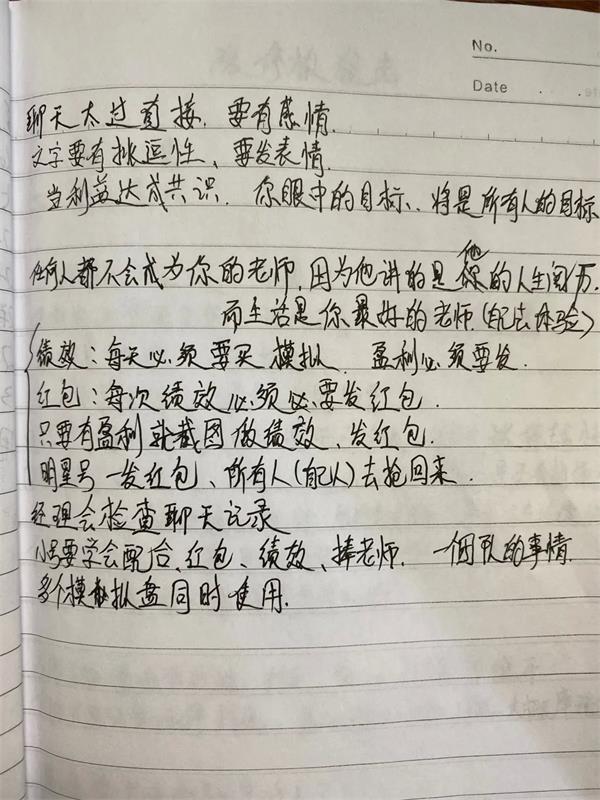 No.
Date
聊天太过直接. 要有感情.
文字要有挑逗性、要发表情.
当利益达成共识. 你眼中的目标.. 将是所有人的目标
任何人都不会成为你的老师, 因为他讲的是他的人生阅历.
而生活是你最好的老师.(自己去体验)
绩效: 每天必须要买模拟. 盈利必须要发.
红包: 每次绩效必须必要发红包.
只要有盈利就截图做绩效、发红包.
明星号一发红包、所有人(自己人)去抢回来.
经理会检查聊天记录
小号要学会配合, 红包、绩效、捧老师. 一个团队的事情.
多个模拟盘同时使用.